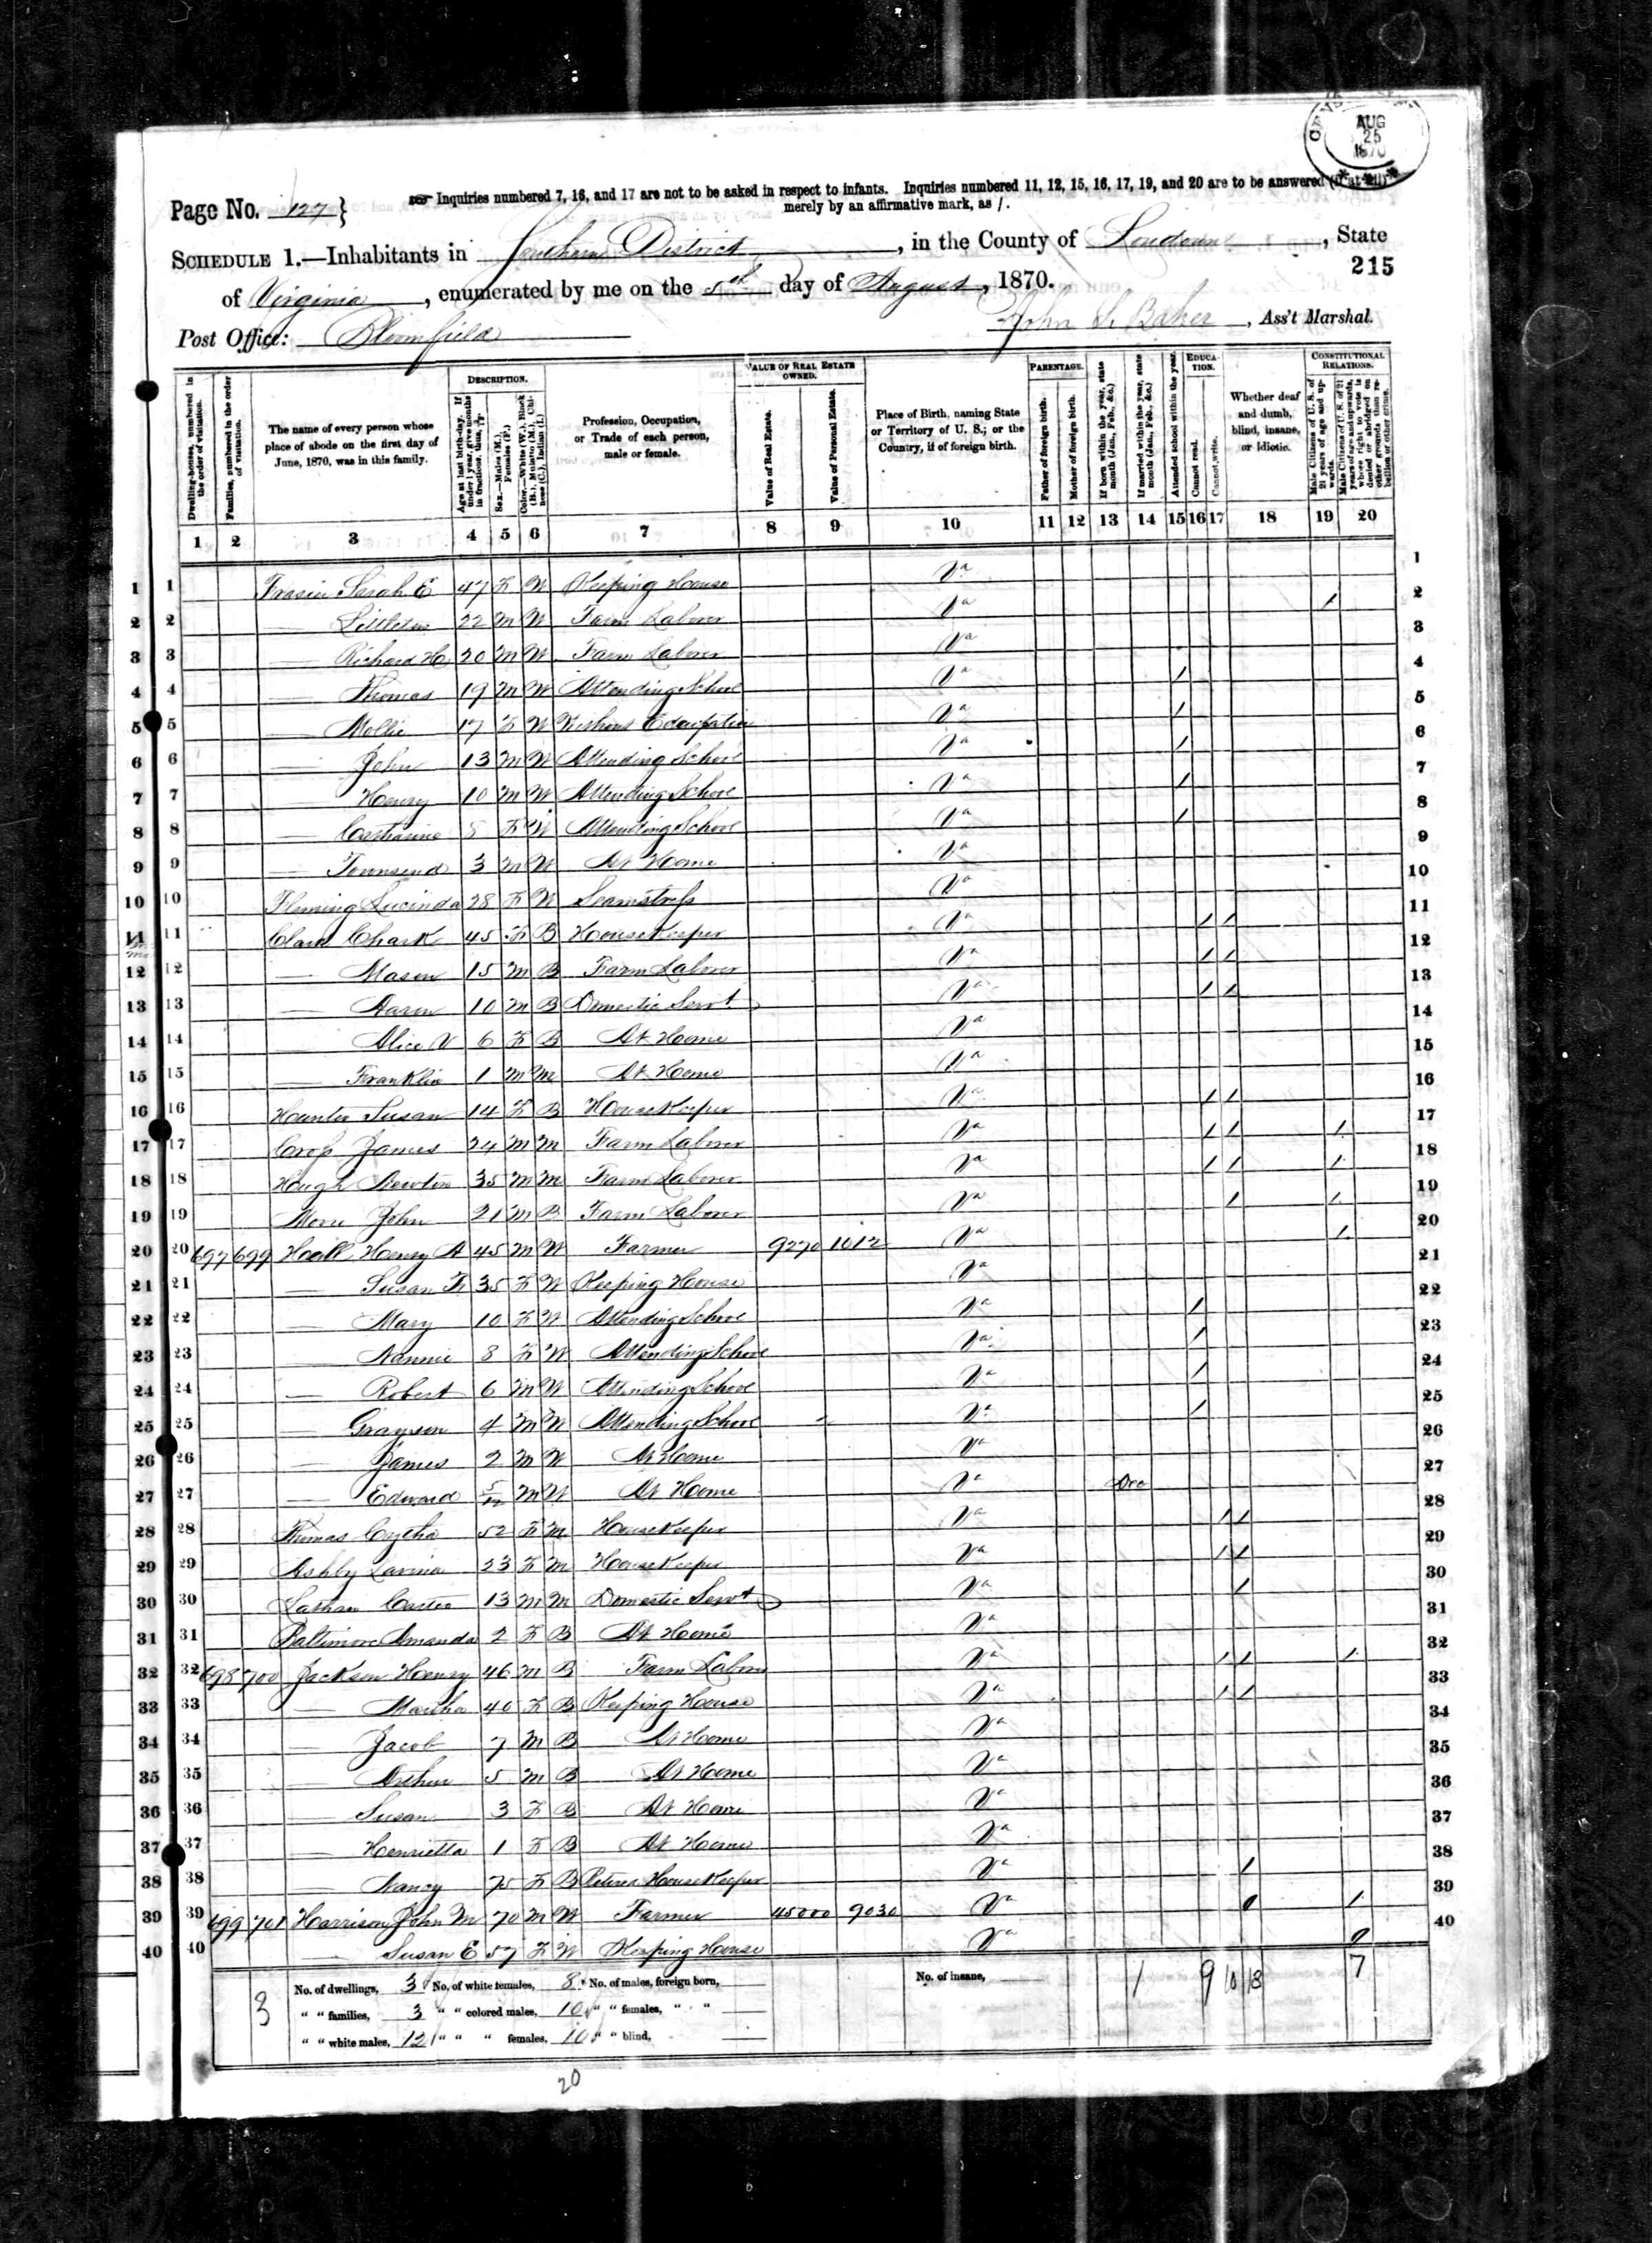 AUG
25
1870
Page No. 127}
Inquiries numbered 7, 16, and 17 are not to be asked in respect to infants. Inquiries numbered 11, 12, 15, 16, 17, 19, and 20 are to be answered (if at all)
merely by an affirmative mark, as /.
SCHEDULE 1.—Inhabitants in Southern District, in the County of Loudoun, State
215
of Virginia, enumerated by me on the 5th day of August, 1870.
Post Office: Bloomfield
John S. Baker, Ass't Marshal.
Dwelling-houses, numbered in the order of visitation.
Families, numbered in the order of visitation.
The name of every person whose place of abode on the first day of June, 1870, was in this family.
DESCRIPTION.
Age at last birth-day. If under 1 year, give months in fractions, thus,
Sex.—Males (M.), Females (F.)
Color.—White (W.), Black (B.), Mulatto (M.), Chinese (C.), Indian (I.)
Profession, Occupation, or Trade of each person, male or female.
VALUE OF REAL ESTATE OWNED.
Value of Real Estate.
Value of Personal Estate.
Place of Birth, naming State or Territory of U. S.; or the Country, if of foreign birth.
PARENTAGE.
Father of foreign birth.
Mother of foreign birth.
If born within the year, state month (Jan., Feb., &c.)
If married within the year, state month (Jan., Feb., &c.)
Attended school within the year.
EDUCATION.
Cannot read.
Cannot write.
Whether deaf and dumb, blind, insane, or idiotic.
CONSTITUTIONAL RELATIONS.
Male Citizens of U. S. of 21 years of age and upwards.
Male Citizens of U. S. of 21 years of age and upwards, whose right to vote is denied or abridged on other grounds than rebellion or other crime.
1 2 3 4 5 6 7 8 9 10 11 12 13 14 15 16 17 18 19 20
1 1 Frasier Sarah E 47 F W Keeping House Va 1
2 2 — Littleton 22 M W Farm Laborer Va / 2
3 3 — Richard H 20 M W Farm Laborer Va 3
4 4 — Thomas 19 M W Attending School Va / 4
5 5 — Mollie 17 F W Va / 5
6 6 — John 13 M W Attending School Va / 6
7 7 — Henry 10 M W Attending School Va / 7
8 8 — Catharine 8 F W Attending School Va / 8
9 9 — Townsend 3 M W At Home Va 9
10 10 Fleming Lucinda 28 F W Seamstress Va 10
11 11 45 F B HouseKeeper Va / / 11
12 12 — Mason 15 M B Farm Laborer Va / / 12
13 13 — Aaron 10 M B Domestic Servt Va / / 13
14 14 — Alice V 6 F B At Home Va 14
15 15 — Franklin 1 M M At Home Va 15
16 16 Hunter Susan 14 F B HouseKeeper Va / / 16
17 17 James 24 M M Farm Laborer Va / / / 17
18 18 Hough Newton 35 M M Farm Laborer Va / / / 18
19 19 John 21 M B Farm Laborer Va / / 19
20 20 697 699 Hall Henry A 45 M W Farmer 9270 1012 Va / 20
21 21 — Susan F 35 F W Keeping House Va 21
22 22 — Mary 10 F W Attending School Va / 22
23 23 — Nannie 8 F W Attending School Va / 23
24 24 — Robert 6 M W Attending School Va / 24
25 25 — Grayson 4 M W Attending School Va / 25
26 26 — James 2 M W At Home Va 26
27 27 — Edward 5/12 M W At Home Va Dec 27
28 28 Thomas 52 F M HouseKeeper Va / / 28
29 29 Ashby Lavinia 23 F M HouseKeeper Va / / 29
30 30 Carter 13 M M Domestic Servt Va / 30
31 31 Baltimore Amanda 2 F B At Home Va 31
32 32 698 700 Jackson Henry 46 M B Farm Labor Va / / / 32
33 33 — Martha 40 F B Keeping House Va / / 33
34 34 — Jacob 7 M B At Home Va 34
35 35 — Arthur 5 M B At Home Va 35
36 36 — Susan 3 F B At Home Va 36
37 37 — Henrietta 1 F B At Home Va 37
38 38 — Nancy 75 F B Retired HouseKeeper Va / 38
39 39 699 701 Harrison John M 70 M W Farmer 45000 9030 Va / 39
40 40 — Susan E 57 F W Keeping House Va 40
3
No. of dwellings, 3 No. of white females, 8 No. of males, foreign born, No. of insane, 1 9 10 13 7
" " families, 3 " " colored males, 10 " " females, " "
" " white males, 12 " " " females, 10 " " blind,
20